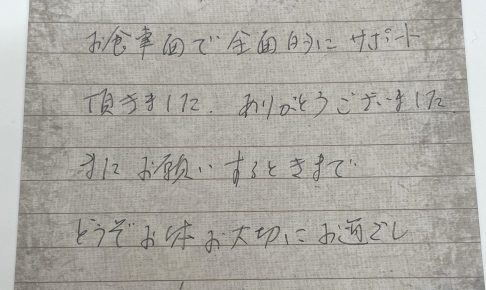 お食事面で全面的にサポート
頂きました。ありがとうございました
またお願いするときまで
どうぞお体お大切にお過ごし